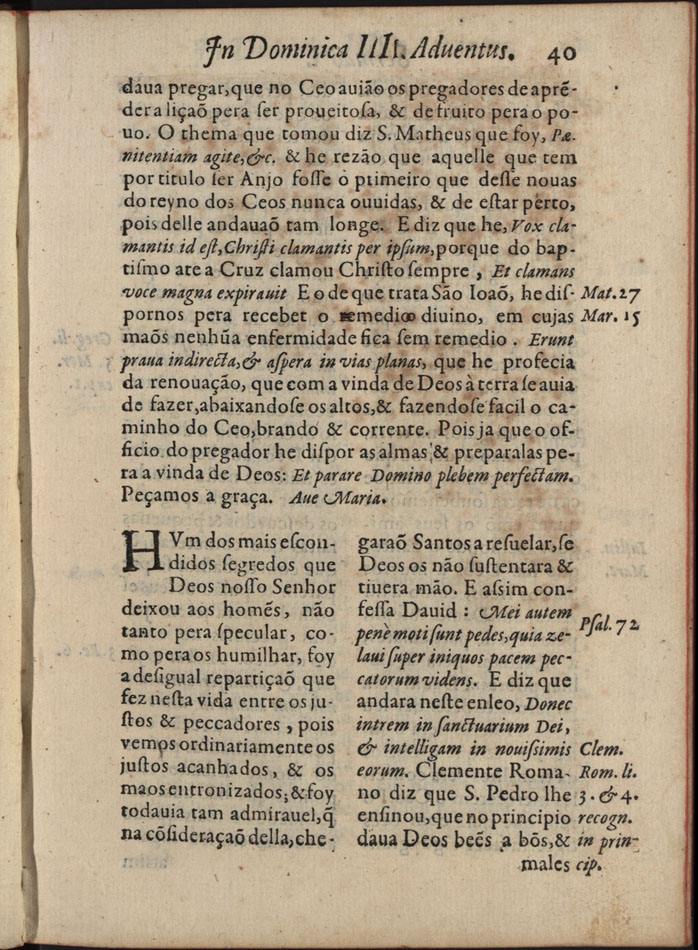 Jn Dominica IIII. Aduentus. 40
daua pregar, que no Ceo auião os pregadores de aprẽ-
der a liçaõ pera ſer proueitoſa, & de fruito pera o po-
uo. O thema que tomou diz S. Matheus que foy, Pæ-
nitentiam agite, &c. & he rezão que aquelle que tem
por titulo ſer Anjo foſſe o primeiro que deſſe nouas
do reyno dos Ceos nunca ouuidas, & de eſtar perto,
pois delle andauaõ tam longe. E diz que he, Vox cla-
mantis id eſt, Chriſti clamantis per ipſum, porque do bap-
tiſmo ate a Cruz clamou Chriſto ſempre, Et clamans
voce magna expirauit E o de que trata São Ioaõ, he diſ- Mat. 27
pornos pera recebet o remedio diuino, em cujas Mar. 15
maõs nenhũa enfermidade fica ſem remedio. Erunt
praua indirecta, & aſpera in vias planas, que he profecia
da renouação, que com a vinda de Deos à terra ſe auia
de fazer, abaixandoſe os altos, & fazendoſe facil o ca-
minho do Ceo, brando & corrente. Pois ja que o of-
ficio do pregador he diſpor as almas & preparalas pe-
ra a vinda de Deos: Et parare Domino plebem perfectam.
Peçamos a graça. Aue Maria.
HVm dos mais eſcon-
didos ſegredos que
Deos noſſo Senhor
deixou aos homẽs, não
tanto pera ſpecular, co-
mo pera os humilhar, foy
a deſigual repartiçaõ que
fez neſta vida entre os ju-
ſtos & peccadores, pois
vemos ordinariamente os
juſtos acanhados, & os
maos entronizados; & foy
todauia tam admirauel, q̃
na cõſideraçaõ della, che-
garaõ Santos a reſuelar, ſe
Deos os não ſuſtentara &
tiuera mão. E aſsim con-
feſſa Dauid : Mei autem
penè moti ſunt pedes, quia ze- Pſal. 72
laui ſuper iniquos pacem pec-
catorum videns. E diz que
andara neſte enleo, Donec
intrem in ſanctuarium Dei,
& intelligam in nouiſsimis Clem.
eorum. Clemente Roma- Rom. li.
no diz que S. Pedro lhe 3. & 4.
enſinou, que no principio recogn.
daua Deos beẽs a bõs, & in prin-
males cip.